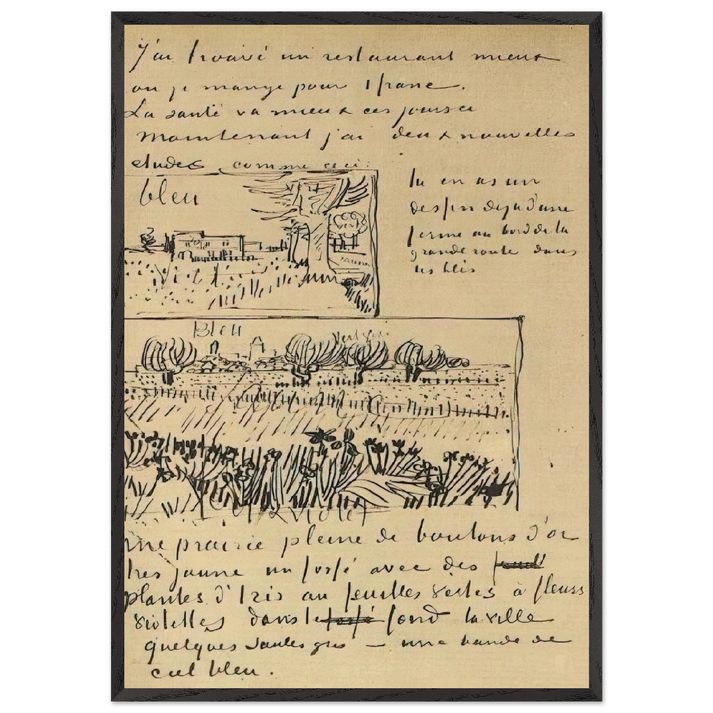 J'ai trouvé un restaurant mieux
ou je mange pour 1 franc.
La santé va mieux ces jours ci
Maintenant j'ai deux nouvelles
etudes comme ceci:
bleu
tu en as un
dessin deja d'une
ferme au bord de la
grande route dans
les blés
Bleu
Violet
une prairie pleine de boutons d'or
tres jaune un fossé avec des
plantes d'Iris au feuilles vertes à fleurs
violettes dans le fond la ville
quelques saules gris – une bande de
ciel bleu.